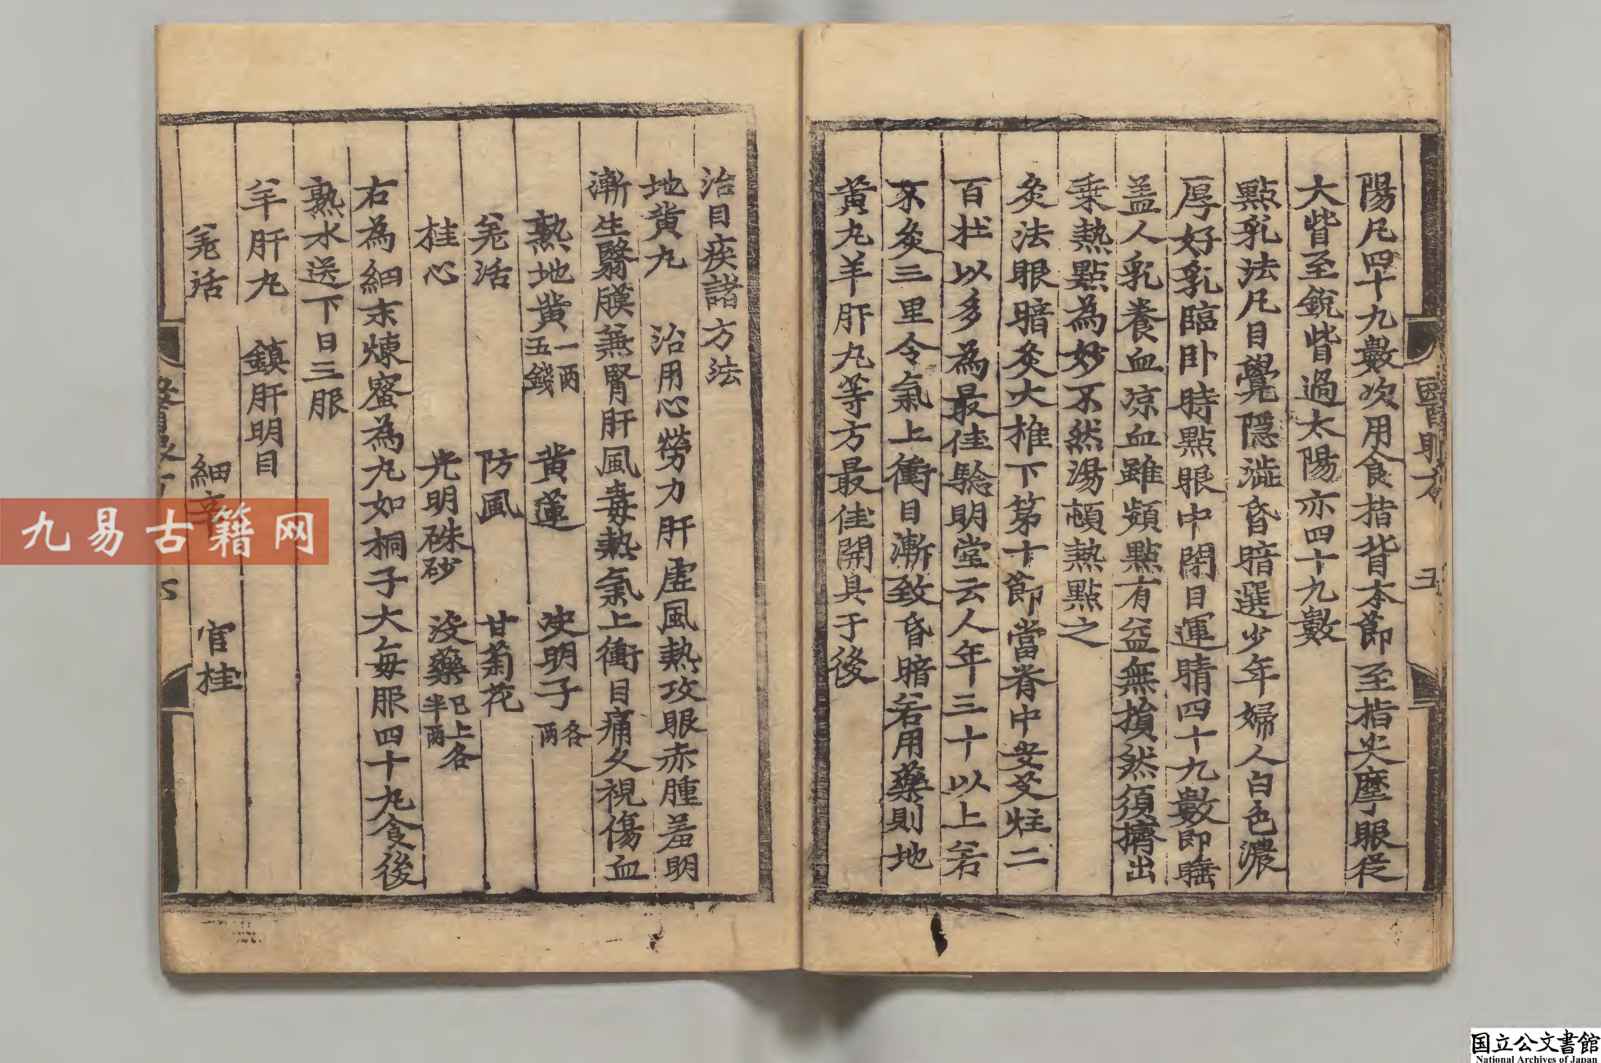 陽凡四十九數次用食指背本節至指尖摩眼從
大眥至銳眥過太陽亦四十九數
點乳法凡目覺隱澁昏暗選少年婦人白色濃
厚好乳臨卧時點眼中閉目運睛四十九數即睡
盖人乳養血凉血雖頻點有益無損然須擠出
乗熱點為妙不然湯頓熱點之
灸法眼暗灸大椎下第十節當脊中安灸炷二
百壯以多為最佳驗明堂云人年三十以上若
不灸三里令氣上衝目漸致昏暗若用藥則地
黄丸羊肝丸等方最佳開具于後
治目疾諸方法
地黄丸 治用心勞力肝虚風熱攻眼赤腫羞明
漸生翳膜兼腎肝風毒熱氣上衝目痛久視傷血
熟地黄一兩五錢 黄連 决明子各兩
羌活 防風 甘菊花
桂心 光明硃砂 没藥已上各半兩
右為細末煉蜜為丸如桐子大每服四十九食後
熟水送下日三服
羊肝丸 鎮肝明目
羌活 細辛 官桂
五
九易古籍网
国立公文書館
National Archives of Japan